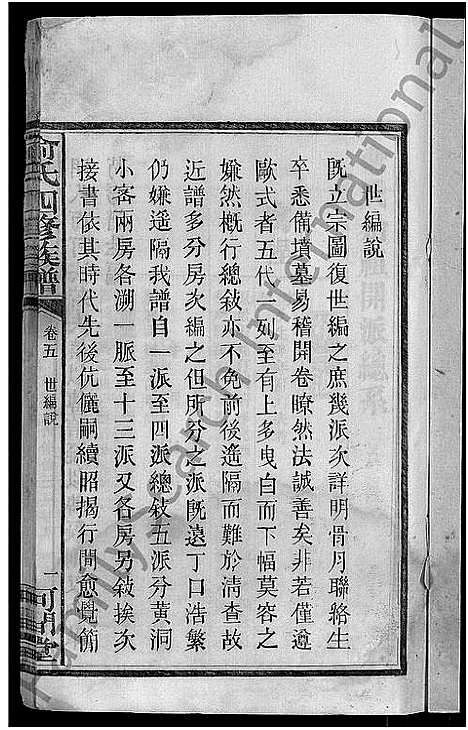 世編說
既立宗圖復世編之庶幾派次詳明骨月聯絡生
卒悉備墳墓易稽開卷瞭然法誠善矣非若僅遵
歐式者五代一列至有上多曳白而下幅莫容之
嫌然概行總敍亦不免前後遙隔而難於清查故
近譜多分房次編之但所分之派既遠丁口浩繁
仍嫌遙隔我譜自一派至四派總敍五派分黃洞
小客兩房各溯一脈至十三派又各房另敍挨次
接書依其時代先後伉儷嗣續昭揭行間愈覺簡
俞氏四修族譜
卷五 世編說
一
河間堂
FamilySearch International